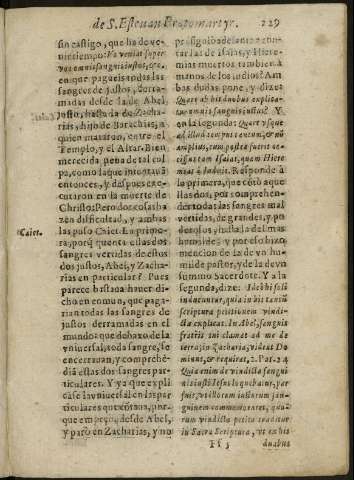 de S. Esteuan Protomartyr. 229
sin castigo, que ha de ve-
nir tiempo: Vt veniat super
vos omnis sanguis iustus, &c.
en que pagueis todas las
sangres de justos, derra-
madas desde la de Abel,
justo, hasta la de Zacha-
rias, hijo de Barachias, a
quien matarõ, entre el
Templo, y el Altar. Bien
merecida pena de tal cul
pa, como la que intentauã
entonces, y despues exe-
cutaron en la muerte de
Christo: Pero dos cosas ha
zen dificultad, y ambas
las puso Caiet. La prime-
ra, porq̃ quenta ellas dos
sangres vertidas de estos
dos justos, Abel, y Zacha-
rias en particular? Pues
parece bastaua hauer di-
cho en comun, que paga-
rian todas las sangres de
justos derramadas en el
mundo: que debaxo de la
vniuersal, toda sangre, se
encerrauan, y comprehē-
diã estas dos sangres par-
ticulares. Y ya que expli
case la vniuersal en las par
ticulares que exprima, porque
que empeçò desde Abel,
y parò en Zacharias, y no
Caiet.
prosiguiò adelante a con-
tar la de Isaias, y Hiere-
mias muertos tambien à
manos de los indios? Am
bas dudas pone, y dize:
Quare ab his duobus explica-
uit omnis sanguis iustus? Y
en la segunda: Quare vsque
ad illud tempus tantum, & nõ
amplius, cum postea fuerit oc-
cissus tam Isaias, quam Hiere
mias à Iudeis. Responde à
la primera, que cõtò aque
llas dos, por comprehen-
der todas las sangres mal
vertidas, de grandes, y po
derosos, hasta la del mas
humilde; y por eso hizo
mencion de la de vn hu-
milde pastor, y de la de vn
summo Sacerdote. Y a la
segunda, dize: Ideò hi soli
inducuntur, quia in his tantũ
scriptura petitionem vindi-
ctæ explicat. In Abel, sanguis
fratris tui clamat ad me de
terra; in Zacharia, videat Do
minus, & requirat, 2. Par. 24
Quia enim de vindicta sangui
nis iusti Iesus loquebatur, par
fuit, vt illorum iustorum san-
guinem commemoraret, quo-
rum vindicta petita traditur
in Sacra Scriptura, vt ex his
Ff 3 duabus